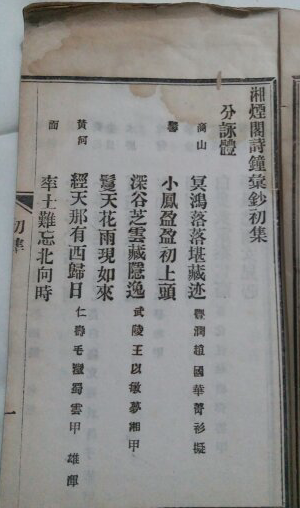 湘煙閣詩鐘彙鈔初集
分詠體
商山
冥鴻落落堪藏迹
豐潤趙國華菁衫擬
小鳳盈盈初上頭
深谷芝雲藏隱逸
武陵王以敏夢湘甲
鬘天花雨現如來
黃河
經天那有西歸日
仁壽毛澂蜀雲甲
雄渾
率土難忘北向時
初集
一